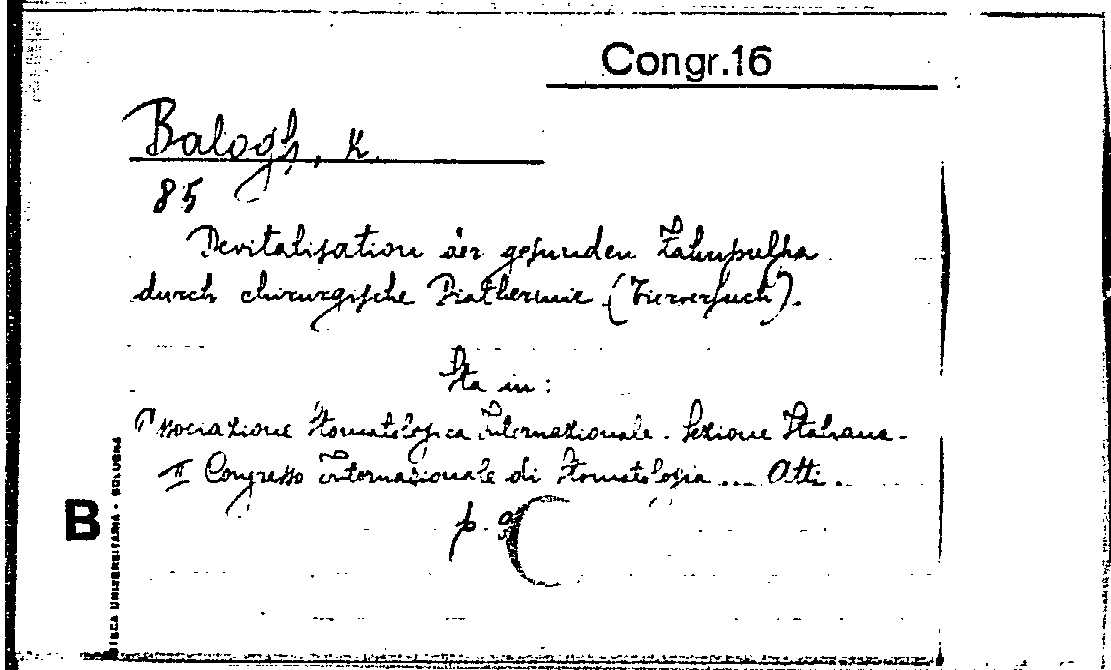 Congr.16
Balogh, K.
85
Devitalisation der gesunden Zahnpulpa
durch chirurgische Diathermie (Tierversuch).
Sta in:
Associazione Stomatologica Internazionale. Sezione Italiana.
II Congresso internazionale di Stomatologia ... Atti.
p.
B
TECA UNIVERSITARIA - BOLOGNA